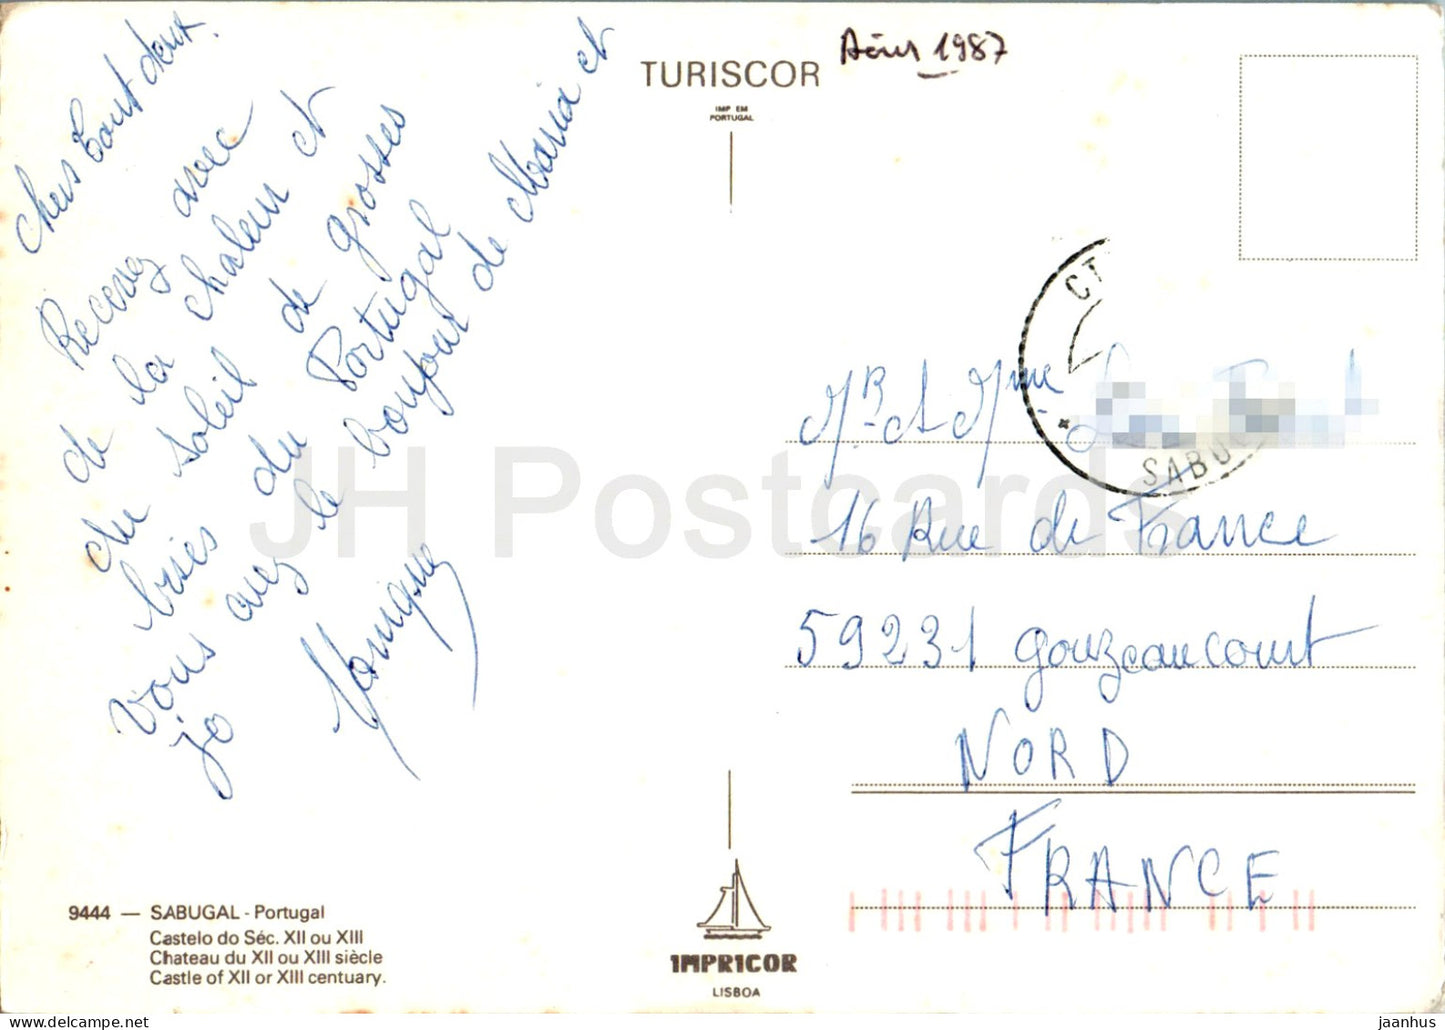 Chers tout deux.
Recevez avec
de la chaleur et
du soleil de grosses
bises du Portugal
vous avez le bonjour de Maria et
jo
Monique
TURISCOR
IMP EM
PORTUGAL
1987
CT
SABU
Mr. et Mme
16 Rue de France
59231 gouzeaucourt
NORD
FRANCE
9444 — SABUGAL - Portugal
Castelo do Séc. XII ou XIII
Chateau du XII ou XIII siècle
Castle of XII or XIII centuary.
IMPRICOR
LISBOA
JH Postcards
delcampe.net
jaanhus